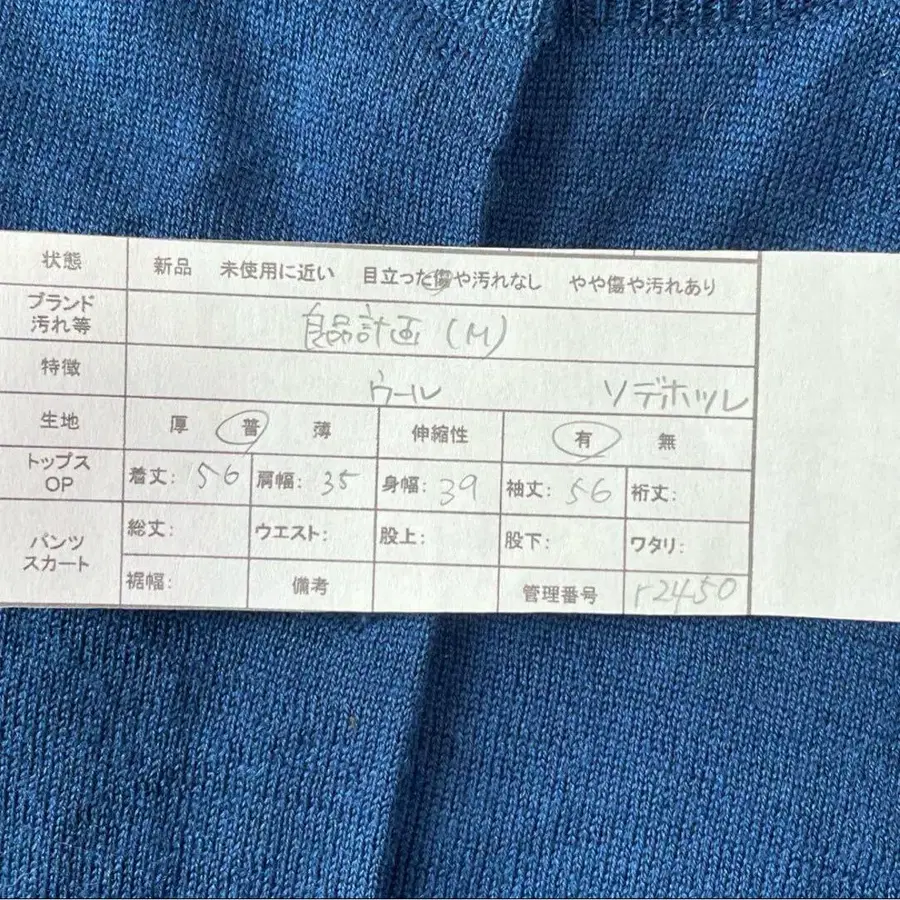 状態 新品 未使用に近い 目立った傷や汚れなし やや傷や汚れあり
ブランド
汚れ等 良品計画(M)
特徴 ウール ソデホツレ
生地 厚 普 薄 伸縮性 有 無
トップス
OP 着丈: 56 肩幅: 35 身幅: 39 袖丈: 56 裄丈:
パンツ
スカート 総丈: ウエスト: 股上: 股下: ワタリ:
裾幅: 備考 管理番号 r2450